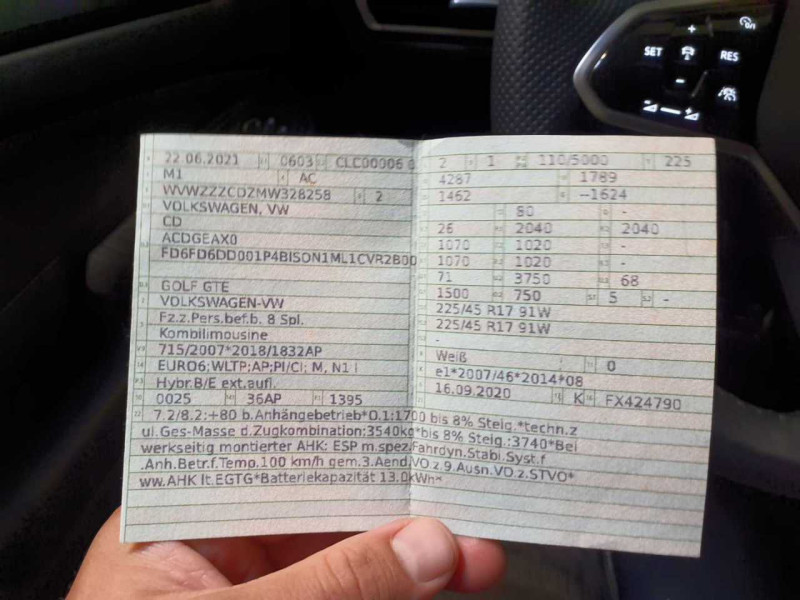 SET
RES
22.06.2021 0603 CLC00006 0
M1 AC
WVWZZZCDZMW328258 2
VOLKSWAGEN, VW
CD
ACDGEAX0
FD6FD6DD001P4BISON1ML1CVR2B00
GOLF GTE
VOLKSWAGEN-VW
Fz.z.Pers.bef.b. 8 Spl.
Kombilimousine
715/2007*2018/1832AP
EURO6;WLTP;AP;PI/CI; M, N1 I
Hybr.B/E ext.aufl.
0025 36AP 1395
2 1 110/5000 225
4287 1789
1462 --1624
80 -
26 2040 2040
1070 1020 -
1070 1020 -
71 3750 68
1500 750 5 -
225/45 R17 91W
225/45 R17 91W
-
Weiß 0
e1*2007/46*2014*08
16.09.2020 K FX424790
7.2/8.2:+80 b.Anhängebetrieb*O.1:1700 bis 8% Steig.*techn.z
ul.Ges-Masse d.Zugkombination:3540kg*bis 8% Steig.:3740*Bei
werkseitig montierter AHK: ESP m.spez.Fahrdyn.Stabi.Syst.f
.Anh.Betr.f.Temp.100 km/h gem.3.Aend.VO z.9.Ausn.VO.z.STVO*
ww.AHK lt.EGTG*Batteriekapazität 13.0kWh*